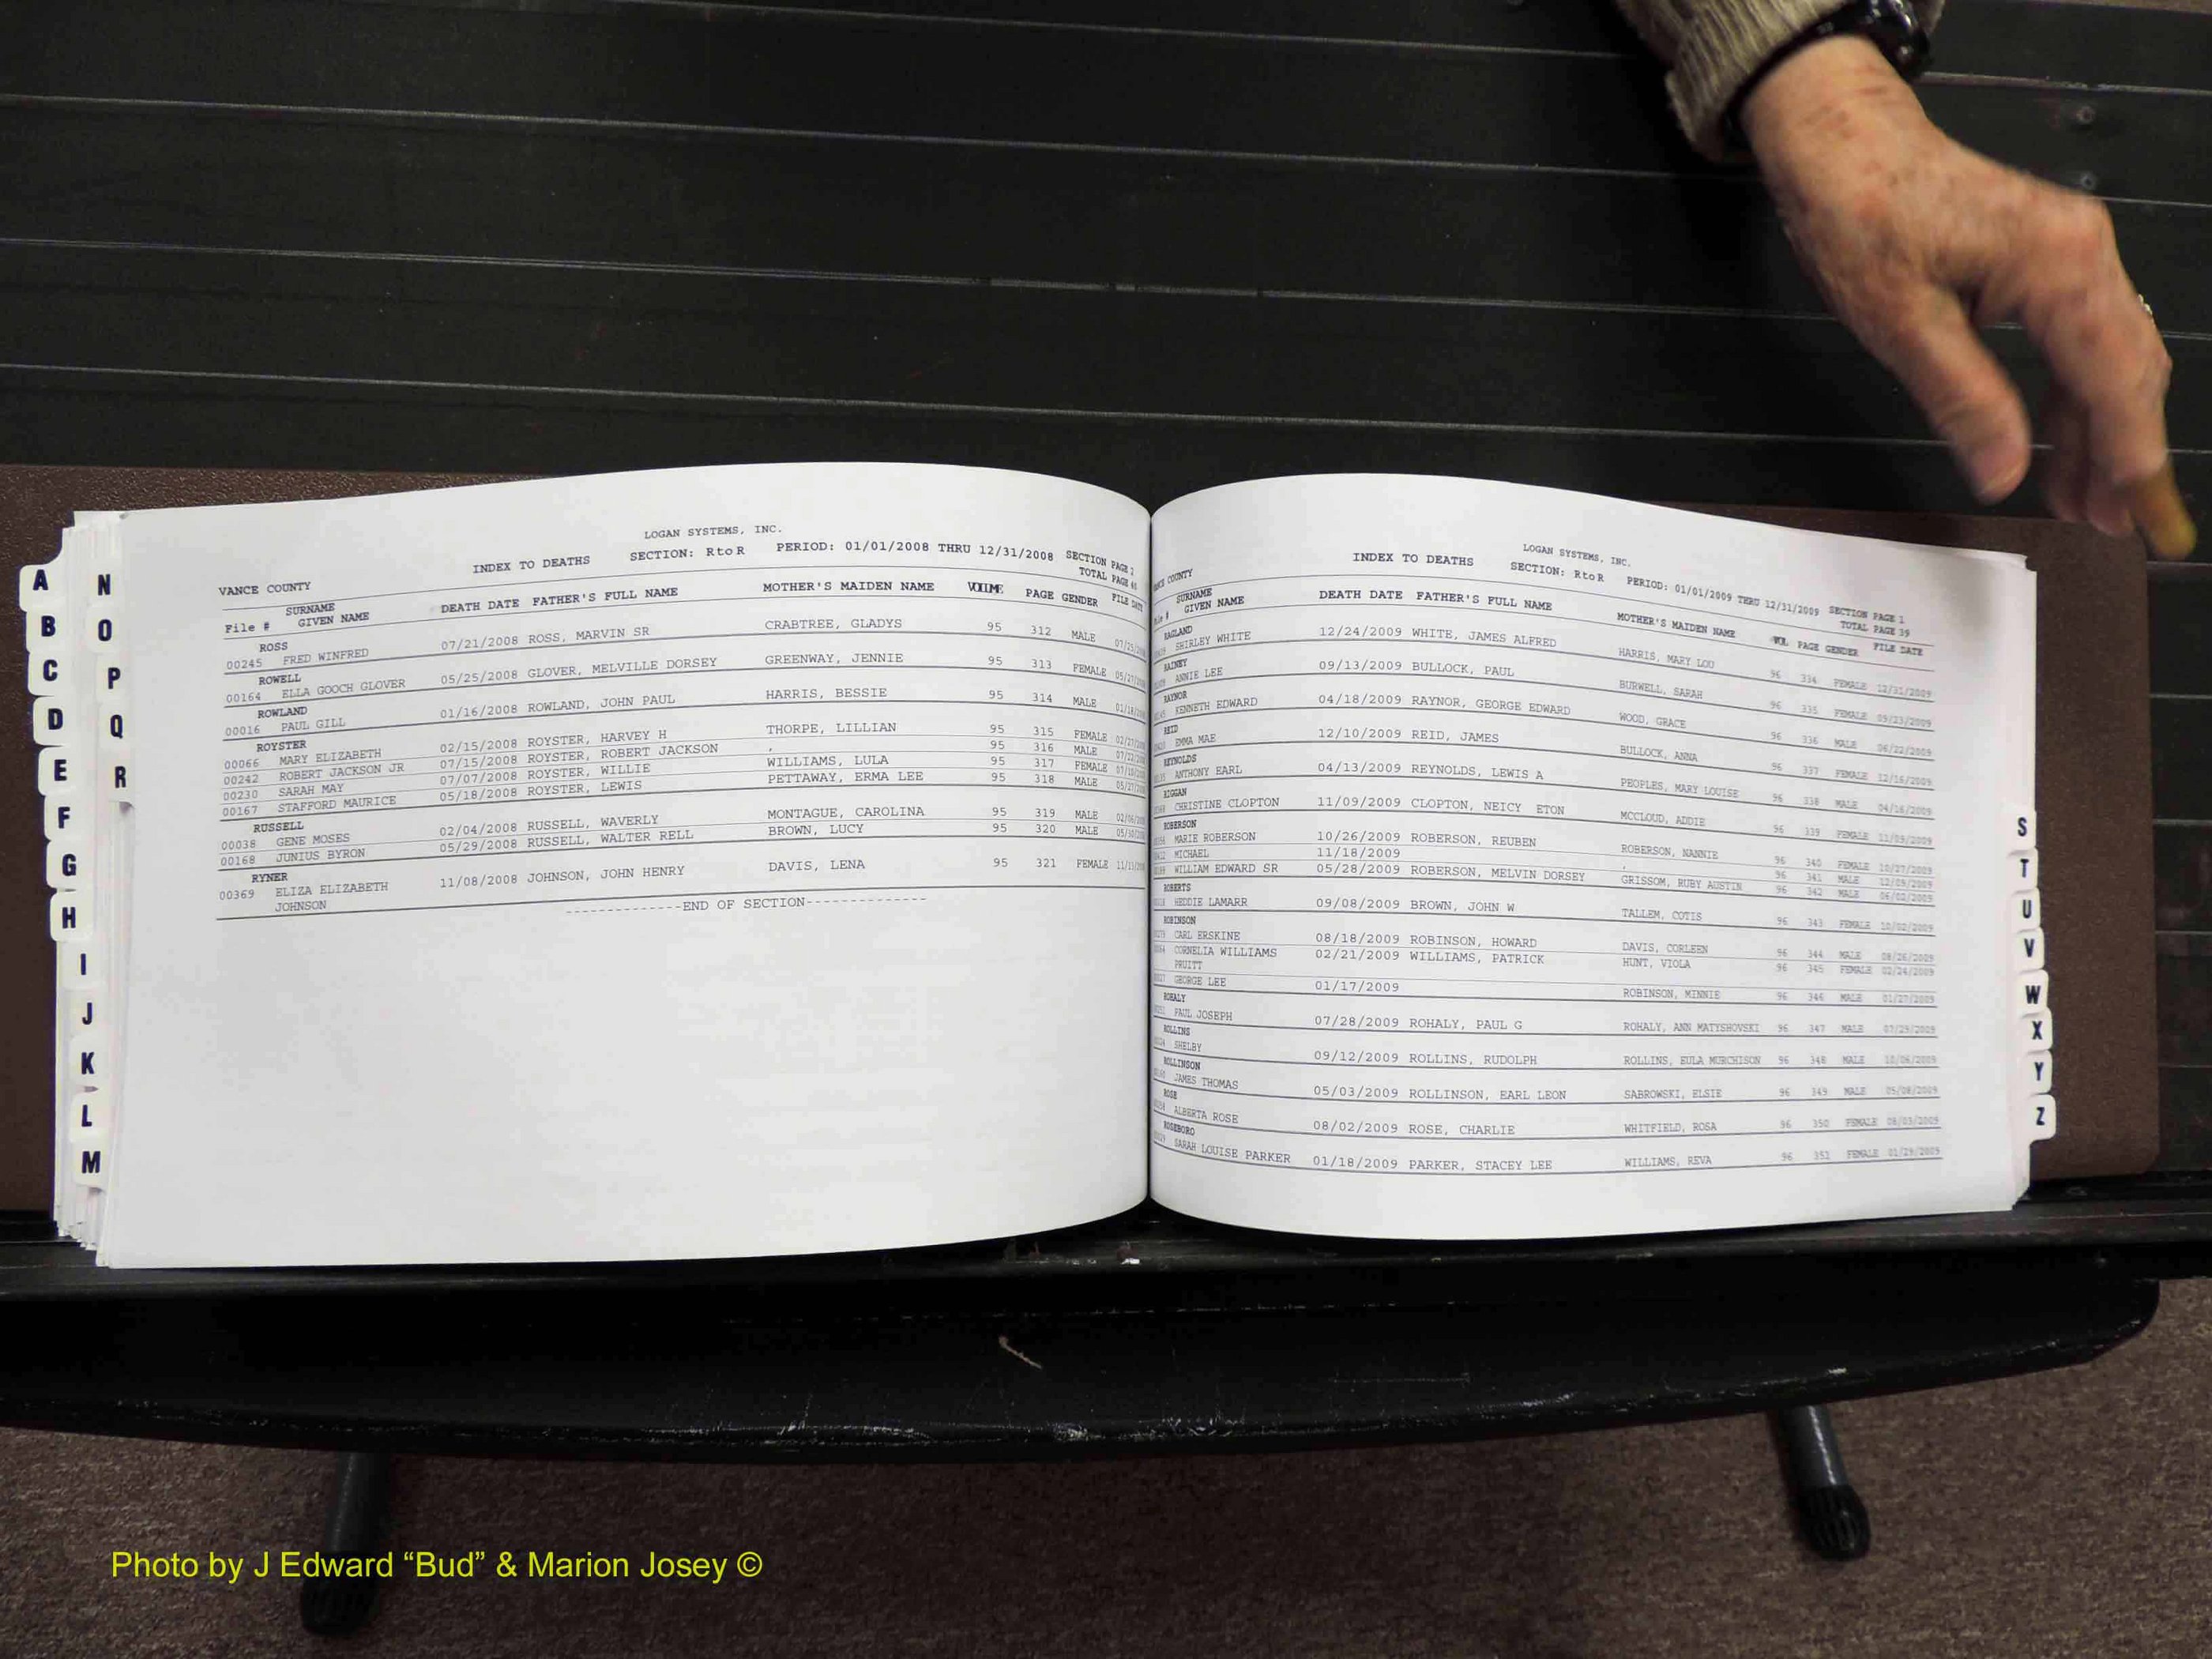 LOGAN SYSTEMS, INC.
VANCE COUNTY INDEX TO DEATHS SECTION: R to R PERIOD: 01/01/2008 THRU 12/31/2008 SECTION PAGE 2
TOTAL PAGE
SURNAME
File # GIVEN NAME DEATH DATE FATHER'S FULL NAME MOTHER'S MAIDEN NAME VOLUME PAGE GENDER FILE DATE
ROSS
00245 FRED WINFRED 07/21/2008 ROSS, MARVIN SR CRABTREE, GLADYS 95 312 MALE
ROWELL
00164 ELLA GOOCH GLOVER 05/25/2008 GLOVER, MELVILLE DORSEY GREENWAY, JENNIE 95 313 FEMALE
ROWLAND
00016 PAUL GILL 01/16/2008 ROWLAND, JOHN PAUL HARRIS, BESSIE 95 314 MALE
ROYSTER
00066 MARY ELIZABETH 02/15/2008 ROYSTER, HARVEY H THORPE, LILLIAN 95 315 FEMALE
00242 ROBERT JACKSON JR 07/15/2008 ROYSTER, ROBERT JACKSON , 95 316 MALE
00230 SARAH MAY 07/07/2008 ROYSTER, WILLIE WILLIAMS, LULA 95 317 FEMALE
00167 STAFFORD MAURICE 05/18/2008 ROYSTER, LEWIS PETTAWAY, ERMA LEE 95 318 MALE
RUSSELL
00038 GENE MOSES 02/04/2008 RUSSELL, WAVERLY MONTAGUE, CAROLINA 95 319 MALE
00168 JUNIUS BYRON 05/29/2008 RUSSELL, WALTER RELL BROWN, LUCY 95 320 MALE
RYNER
00369 ELIZA ELIZABETH 11/08/2008 JOHNSON, JOHN HENRY DAVIS, LENA 95 321 FEMALE
JOHNSON
--------------END OF SECTION--------------
LOGAN SYSTEMS, INC.
COUNTY INDEX TO DEATHS SECTION: R to R PERIOD: 01/01/2009 THRU 12/31/2009 SECTION PAGE 1
TOTAL PAGE 39
SURNAME
File # GIVEN NAME DEATH DATE FATHER'S FULL NAME MOTHER'S MAIDEN NAME VOL PAGE GENDER FILE DATE
RAGLAND
SHIRLEY WHITE 12/24/2009 WHITE, JAMES ALFRED HARRIS, MARY LOU 96 334 FEMALE 12/31/2009
RAINEY
ANNIE LEE 09/13/2009 BULLOCK, PAUL BURWELL, SARAH 96 335 FEMALE 09/23/2009
RAYNOR
KENNETH EDWARD 04/18/2009 RAYNOR, GEORGE EDWARD WOOD, GRACE 96 336 MALE 06/22/2009
REID
EMMA MAE 12/10/2009 REID, JAMES BULLOCK, ANNA 96 337 FEMALE 12/16/2009
REYNOLDS
ANTHONY EARL 04/13/2009 REYNOLDS, LEWIS A PEOPLES, MARY LOUISE 96 338 MALE 04/16/2009
RIGGAN
CHRISTINE CLOPTON 11/09/2009 CLOPTON, NEICY ETON MCCLOUD, ADDIE 96 339 FEMALE 11/09/2009
ROBERSON
MARIE ROBERSON 10/26/2009 ROBERSON, REUBEN ROBERSON, NANNIE 96 340 FEMALE 10/27/2009
MICHAEL 11/18/2009 , 96 341 MALE 12/09/2009
WILLIAM EDWARD SR 05/28/2009 ROBERSON, MELVIN DORSEY GRISSOM, RUBY AUSTIN 96 342 MALE 06/02/2009
ROBERTS
HEDDIE LAMARR 09/08/2009 BROWN, JOHN W TALLEM, COTIS 96 343 FEMALE 10/02/2009
ROBINSON
CARL ERSKINE 08/18/2009 ROBINSON, HOWARD DAVIS, CORLEEN 96 344 MALE 08/26/2009
CORNELIA WILLIAMS 02/21/2009 WILLIAMS, PATRICK HUNT, VIOLA 96 345 FEMALE 02/24/2009
PRUITT
GEORGE LEE 01/17/2009 ROBINSON, MINNIE 96 346 MALE 01/27/2009
ROHALY
PAUL JOSEPH 07/28/2009 ROHALY, PAUL G ROHALY, ANN MATYSHOVSKI 96 347 MALE 07/29/2009
ROLLINS
SHELBY 09/12/2009 ROLLINS, RUDOLPH ROLLINS, EULA MURCHISON 96 348 MALE 10/06/2009
ROLLINSON
JAMES THOMAS 05/03/2009 ROLLINSON, EARL LEON SABROWSKI, ELSIE 96 349 MALE 05/08/2009
ROSE
ALBERTA ROSE 08/02/2009 ROSE, CHARLIE WHITFIELD, ROSA 96 350 FEMALE 08/03/2009
ROSEBORO
SARAH LOUISE PARKER 01/18/2009 PARKER, STACEY LEE WILLIAMS, REVA 96 351 FEMALE 01/29/2009
A
B
C
D
E
F
G
H
I
J
K
L
M
N
O
P
Q
R
S
T
U
V
W
X
Y
Z
Photo by J Edward “Bud” & Marion Josey ©